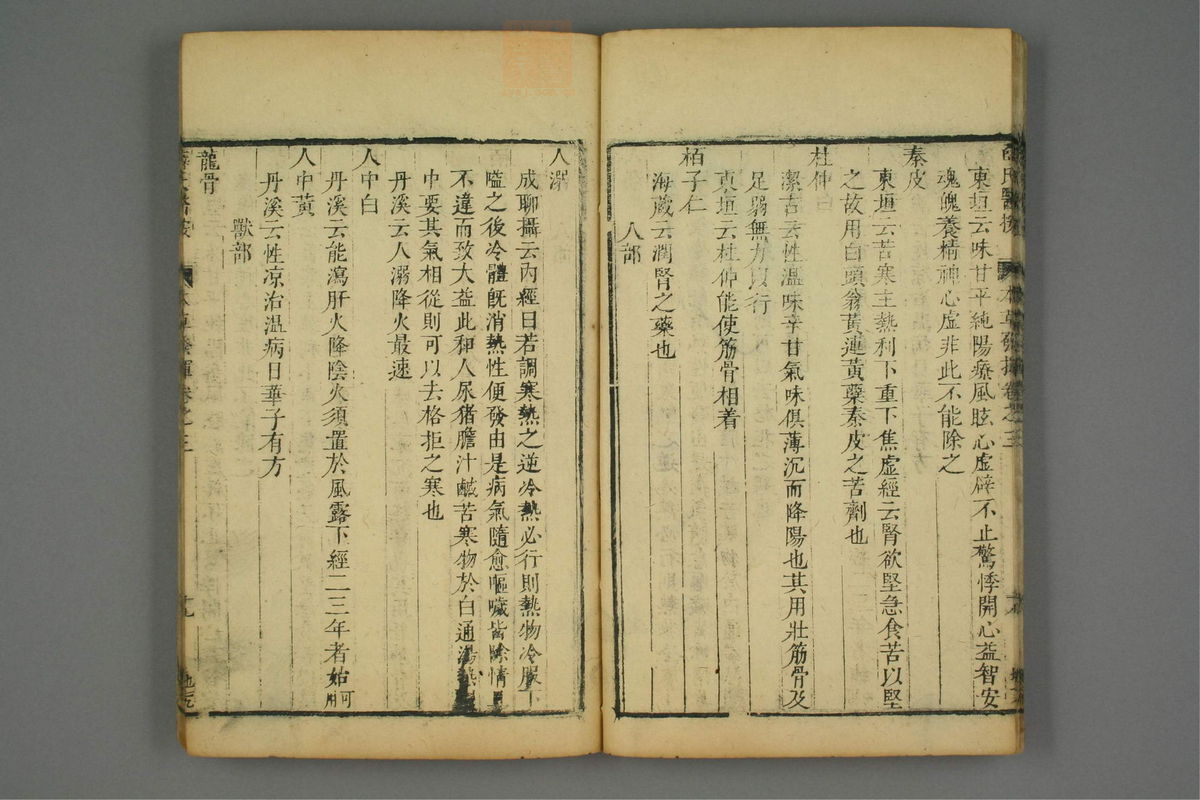 東垣云味甘平純陽療風眩心虛辟不止驚悸開心益智安
魂魄養精神心虛非此不能除之
秦皮
東垣云苦寒主熱利下重下焦虛經云腎欲堅急食苦以堅
之故用白頭翁黃連黃蘗秦皮之苦劑也
杜仲
潔古云性溫味辛甘氣味俱薄沉而降陽也其用壯筋骨及
足弱無力以行
東垣云杜仲能使筋骨相着
栢子仁
海藏云潤腎之藥也
人部
人溺
成聊攝云內經曰若調寒熱之逆冷熱必行則熱物冷服下
嗌之後冷體既消熱性便發由是病氣隨愈嘔噦皆除情
不違而致大益此和人尿猪膽汁鹹苦寒物於白通湯熱
中要其氣相從則可以去格拒之寒也
丹溪云人溺降火最速
人中白
丹溪云能瀉肝火降陰火須置於風露下經二三年者始可用
人中黃
丹溪云性凉治溫病日華子有方
獸部
龍骨
卷之三
十九